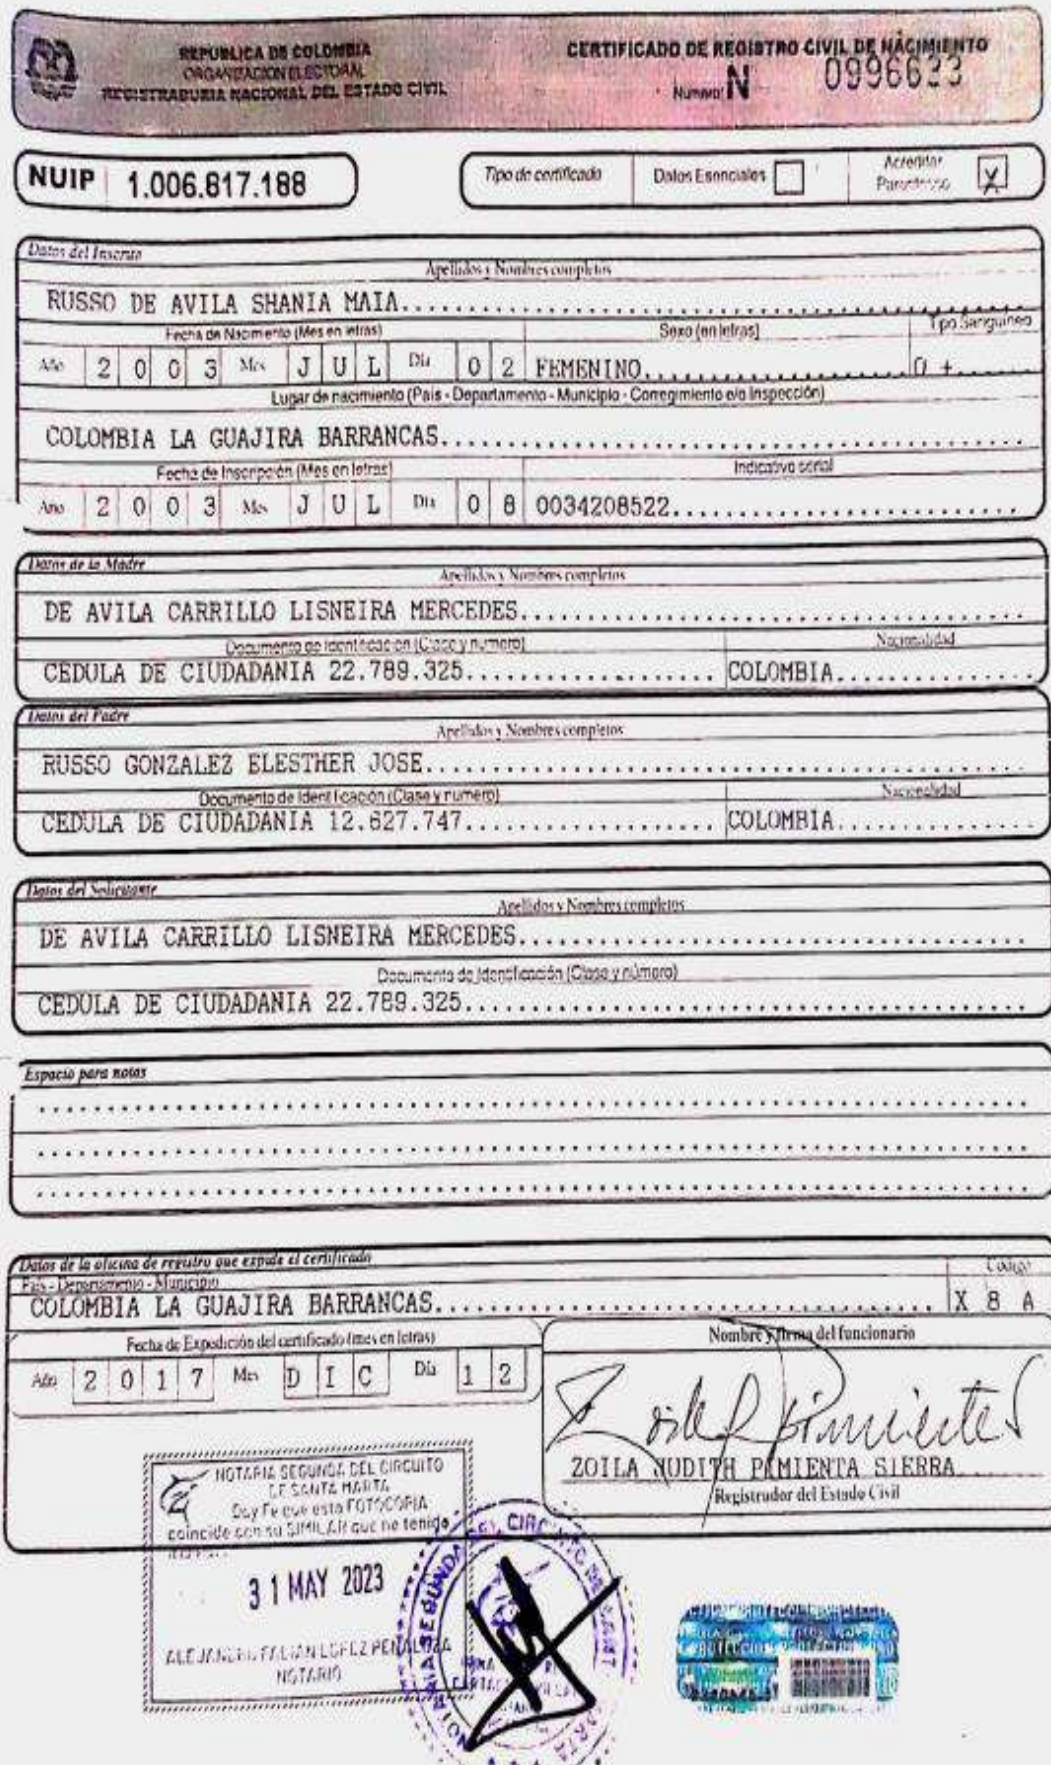 REPUBLICA DE COLOMBIA
ORGANIZACION ELECTORAL
REGISTRADURIA NACIONAL DEL ESTADO CIVIL
CERTIFICADO DE REGISTRO CIVIL DE NACIMIENTO
Numero: N 0996633
NUIP 1.006.817.188
Tipo de certificado Datos Esenciales Acreditar Parentesco X
Datos del Inscrito
Apellidos y Nombres completos
RUSSO DE AVILA SHANIA MAIA
Fecha de Nacimiento (Mes en letras) Sexo (en letras) Tipo Sanguineo
Año 2003 Mes JUL Día 02 FEMENINO O +
Lugar de nacimiento (País - Departamento - Municipio - Corregimiento e/o Inspección)
COLOMBIA LA GUAJIRA BARRANCAS
Fecha de Inscripción (Mes en letras) Indicativo serial
Año 2003 Mes JUL Día 08 0034208522
Datos de la Madre
Apellidos y Nombres completos
DE AVILA CARRILLO LISNEIRA MERCEDES
Documento de Identificación (Clase y número) Nacionalidad
CEDULA DE CIUDADANIA 22.789.325 COLOMBIA
Datos del Padre
Apellidos y Nombres completos
RUSSO GONZALEZ ELESTHER JOSE
Documento de Identificación (Clase y número) Nacionalidad
CEDULA DE CIUDADANIA 12.627.747 COLOMBIA
Datos del Solicitante
Apellidos y Nombres completos
DE AVILA CARRILLO LISNEIRA MERCEDES
Documento de Identificación (Clase y número)
CEDULA DE CIUDADANIA 22.789.325
Espacio para notas
Datos de la oficina de registro que expide el certificado
País - Departamento - Municipio Código
COLOMBIA LA GUAJIRA BARRANCAS X 8 A
Fecha de Expedición del certificado (mes en letras) Nombre y firma del funcionario
Año 2017 Mes DIC Día 12
ZOILA JUDITH PIMIENTA SIERRA
Registrador del Estado Civil
NOTARIA SEGUNDA DEL CIRCUITO
DE SANTA MARTA
Doy Fe que esta FOTOCOPIA
coincide con su SIMILAR que he tenido
31 MAY 2023
ALEJANDRO FABIAN LOPEZ PEÑALOZA
NOTARIO
NOTARIA SEGUNDA DEL CIRCUITO DE